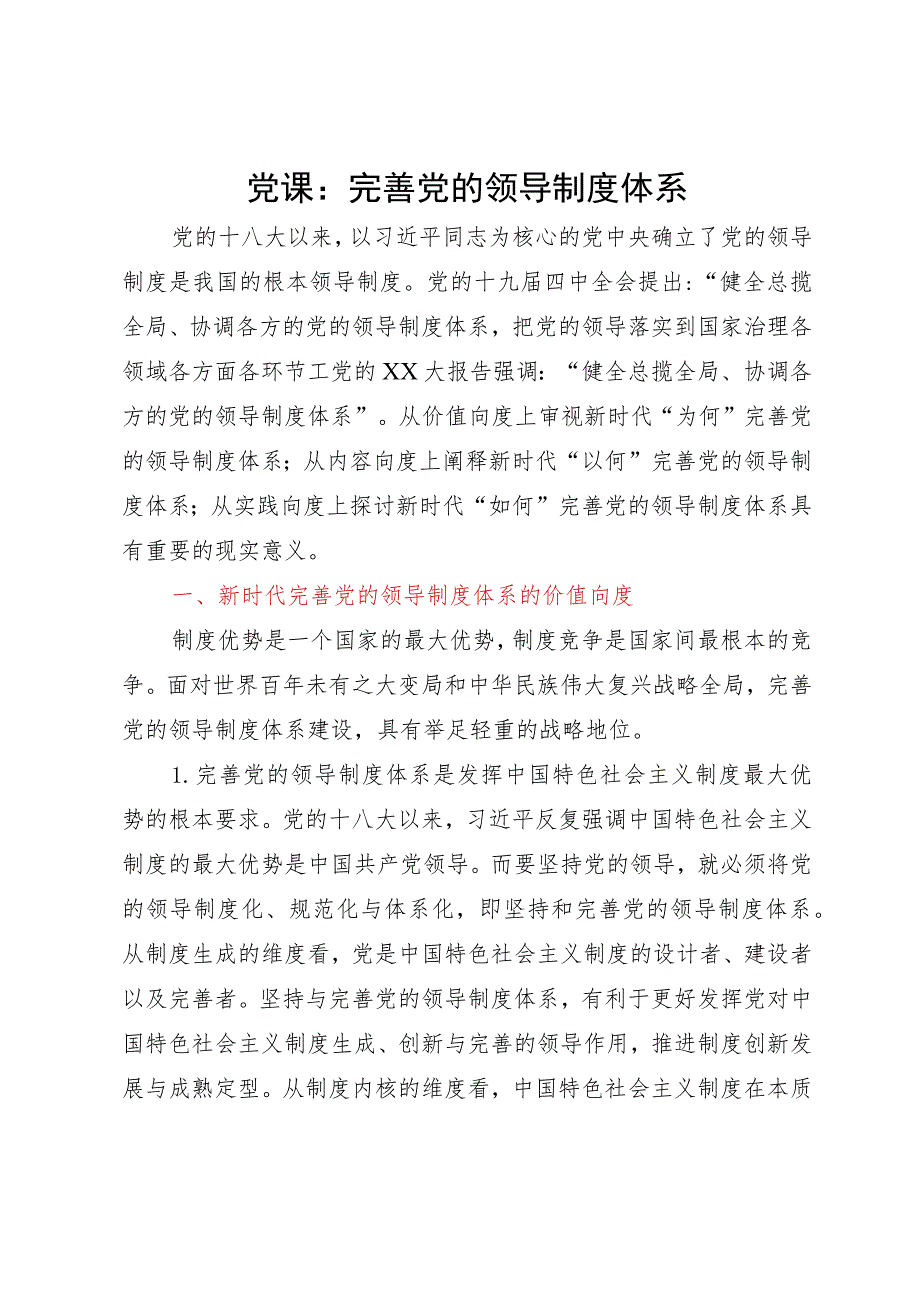 党课：完善党的领导制度体系
党的十八大以来，以习近平同志为核心的党中央确立了党的领导
制度是我国的根本领导制度。党的十九届四中全会提出：“健全总揽
全局、协调各方的党的领导制度体系，把党的领导落实到国家治理各
领域各方面各环节工党的 XX 大报告强调：“健全总揽全局、协调各
方的党的领导制度体系”。从价值向度上审视新时代“为何”完善党
的领导制度体系；从内容向度上阐释新时代“以何”完善党的领导制
度体系；从实践向度上探讨新时代“如何”完善党的领导制度体系具
有重要的现实意义。
一、新时代完善党的领导制度体系的价值向度
制度优势是一个国家的最大优势，制度竞争是国家间最根本的竞
争。面对世界百年未有之大变局和中华民族伟大复兴战略全局，完善
党的领导制度体系建设，具有举足轻重的战略地位。
1. 完善党的领导制度体系是发挥中国特色社会主义制度最大优
势的根本要求。党的十八大以来，习近平反复强调中国特色社会主义
制度的最大优势是中国共产党领导。而要坚持党的领导，就必须将党
的领导制度化、规范化与体系化，即坚持和完善党的领导制度体系。
从制度生成的维度看，党是中国特色社会主义制度的设计者、建设者
以及完善者。坚持与完善党的领导制度体系，有利于更好发挥党对中
国特色社会主义制度生成、创新与完善的领导作用，推进制度创新发
展与成熟定型。从制度内核的维度看，中国特色社会主义制度在本质